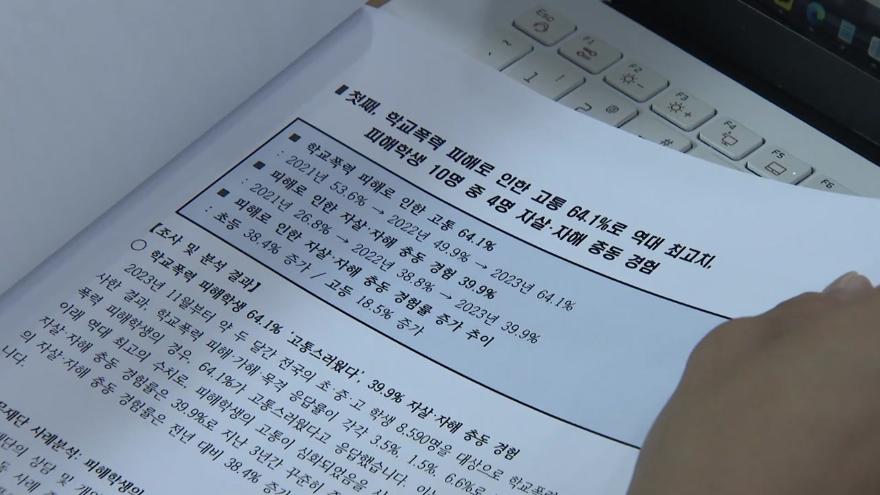 ■ 첫째, 학교폭력 피해로 인한 고통 64.1%로 역대 최고치,
피해학생 10명 중 4명 자살·자해 충동 경험
■ 학교폭력 피해로 인한 고통 64.1%
: 2021년 53.6% → 2022년 49.9% → 2023년 64.1%
■ 피해로 인한 자살·자해 충동 경험 39.9%
: 2021년 26.8% → 2022년 38.8% → 2023년 39.9%
■ 피해로 인한 자살·자해 충동 경험률 증가 추이
: 초등 38.4% 증가 / 고등 18.5% 증가
[조사 및 분석 결과]
○ 학교폭력 피해학생 64.1% '고통스러웠다', 39.9% 자살·자해 충동 경험
2023년 11월부터 약 두 달간 전국의 초·중·고 학생 8,590명을 대상으로 학교폭
사한 결과, 학교폭력 피해·가해·목격 응답률이 각각 3.5%, 1.5%, 6.6%로
폭력 피해학생의 경우, 64.1%가 고통스러웠다고 응답했습니다.
이래 역대 최고의 수치로, 피해학생의 고통이 심화되었음을
자살·자해 충동 경험률은 39.9%로 지난 3년간 꾸준히
의 자살·자해 충동 경험률은 전년 대비 38.4%
니다.
문재단 사례분석: 피해학생의
재단의 상담 및
동 사례
Esc
F1
F2
F3
F4
F5
F6
~
!
1
@
2
#